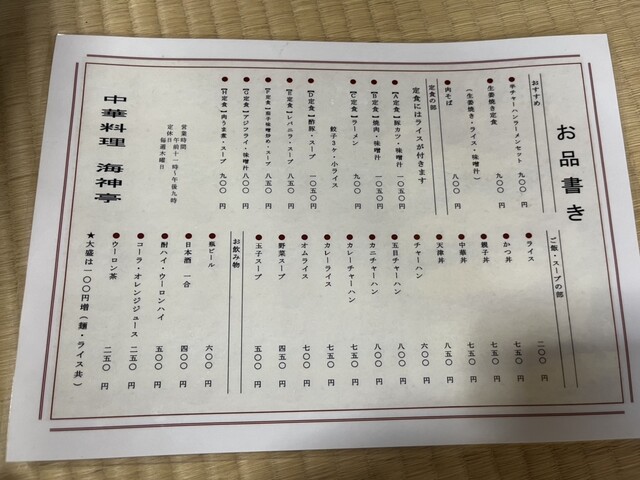 お品書き
おすすめ
●半チャーハンラーメンセット 九〇〇 円
●生姜焼き定食 九〇〇 円
(生姜焼き・ライス・味噌汁)
●肉そば 八〇〇 円
定食の部
定食にはライスが付きます
●【A定食】豚カツ・味噌汁 一〇五〇 円
●【B定食】焼肉・味噌汁 一〇五〇 円
●【C定食】ラーメン 九〇〇 円
餃子3ヶ・小ライス
●【D定食】酢豚・スープ 一〇五〇 円
●【E定食】レバニラ・スープ 八五〇 円
●【F定食】茄子味噌炒め・スープ 八五〇 円
●【G定食】アジフライ・味噌汁 八〇〇 円
●【H定食】肉うま煮・スープ 九〇〇 円
ご飯・スープの部
●ライス 二〇〇 円
●かつ丼 七五〇 円
●親子丼 七五〇 円
●中華丼 七五〇 円
●天津丼 八五〇 円
●チャーハン 六〇〇 円
●五目チャーハン 七五〇 円
●カニチャーハン 八〇〇 円
●カレーチャーハン 七〇〇 円
●カレーライス 七〇〇 円
●オムライス 七五〇 円
●野菜スープ 四五〇 円
●玉子スープ 五〇〇 円
お飲み物
●瓶ビール 六〇〇 円
●日本酒 一合 四〇〇 円
●酎ハイ・ウーロンハイ 三五〇 円
●コーラ・オレンジジュース 二五〇 円
●ウーロン茶 二五〇 円
★大盛は一〇〇円増(麺・ライス共)
営業時間 午前十一時～午後九時
定休日 毎週木曜日
中華料理 海神亭